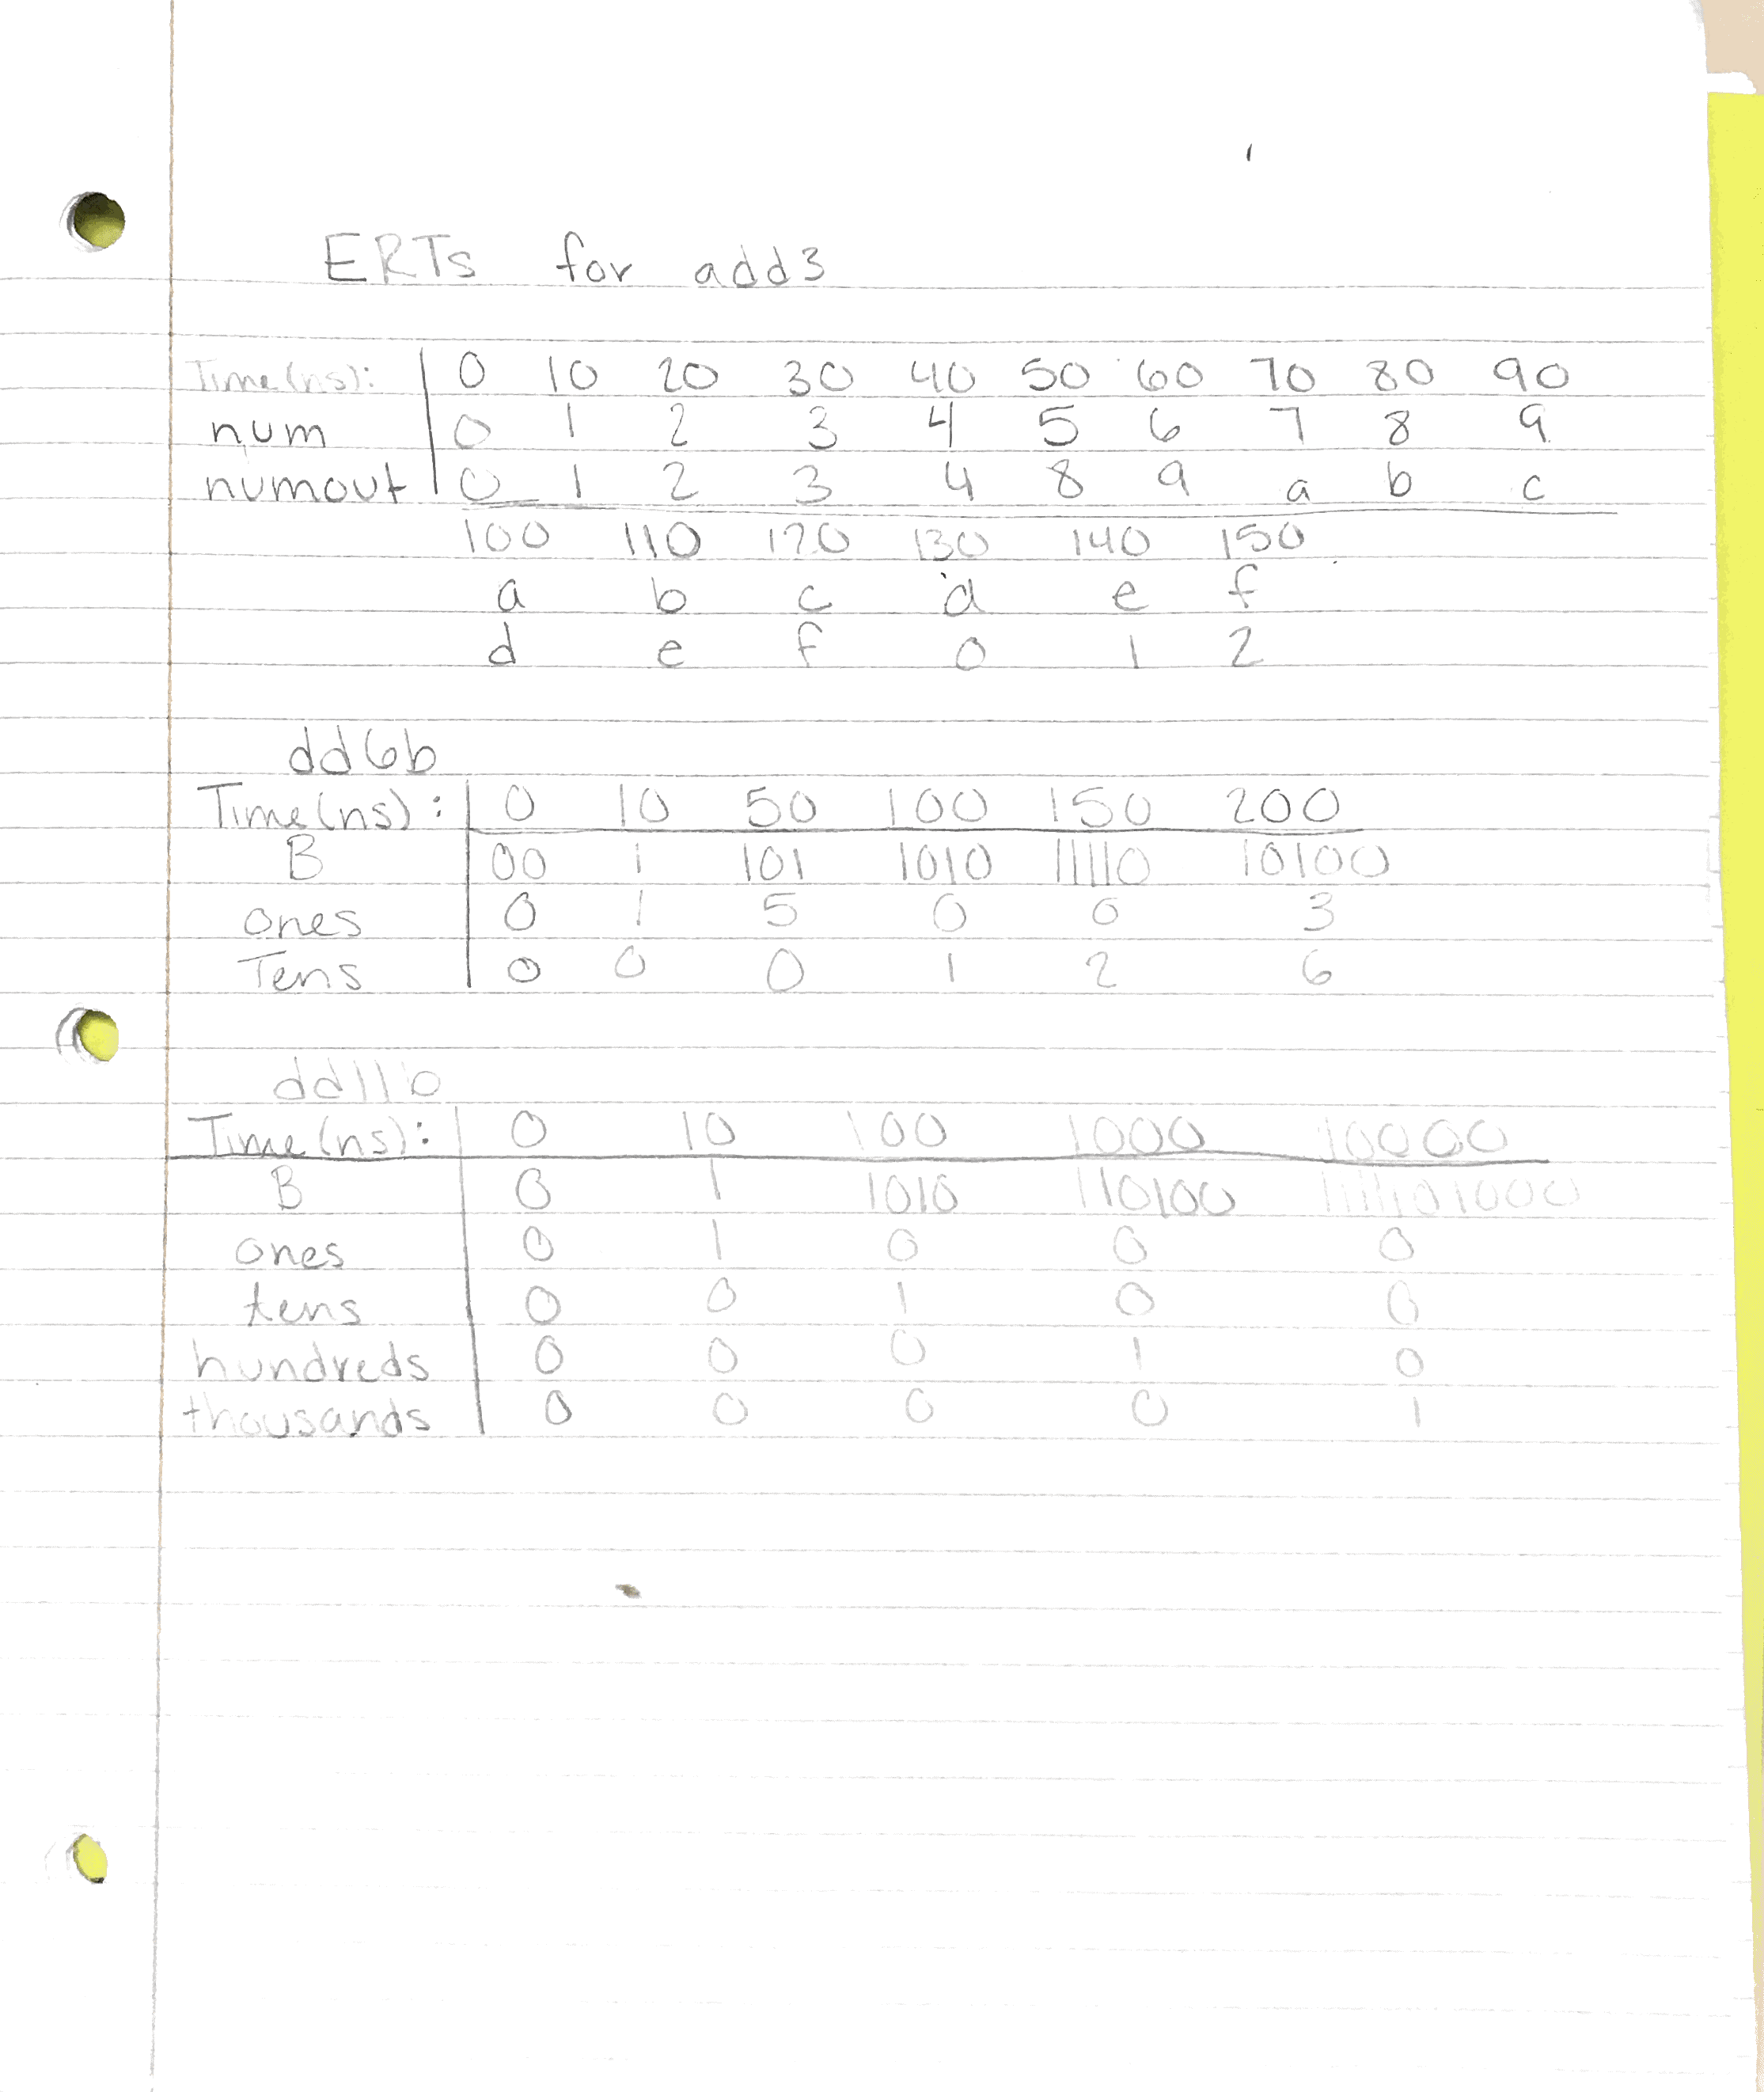 ERTs for add3
Time(ns): 0 10 20 30 40 50 60 70 80 90
num 0 1 2 3 4 5 6 7 8 9
numout 0 1 2 3 4 8 9 a b c
100 110 120 130 140 150
a b c d e f
d e f 0 1 2
dd6b
Time(ns): 0 10 50 100 150 200
B 00 1 101 1010 11110 10100
ones 0 1 5 0 0 3
Tens 0 0 0 1 2 6
dd11b
Time(ns): 0 10 100 1000 10000
B 0 1 1010 110100
ones 0 1 0 0 0
tens 0 0 1 0 0
hundreds 0 0 0 1 0
thousands 0 0 0 0 1